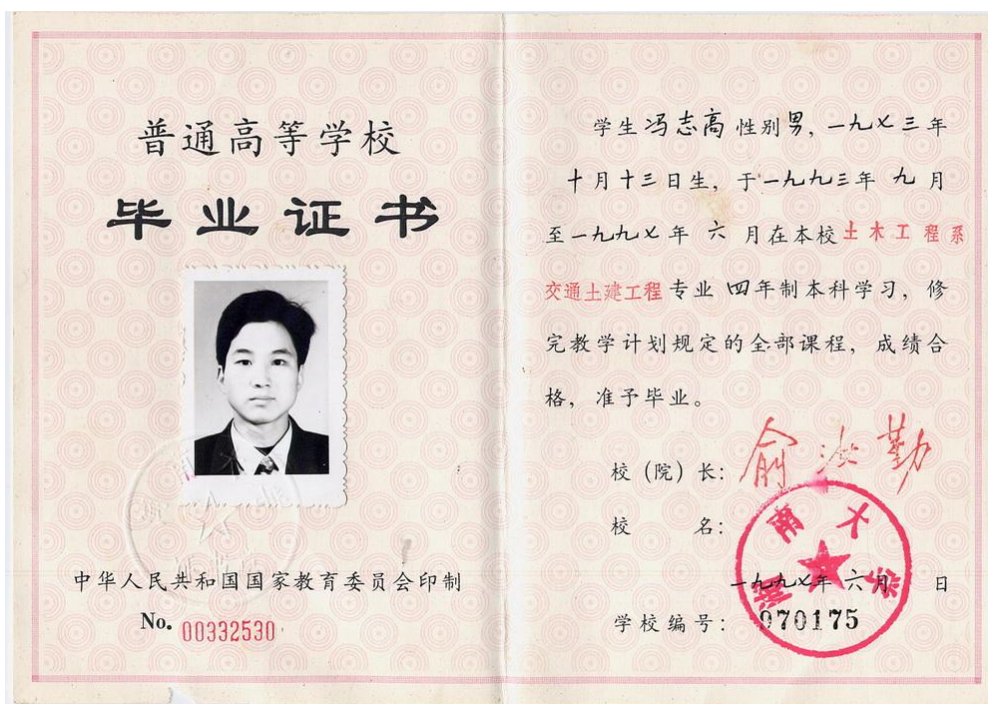 普通高等学校
毕业证书
中华人民共和国国家教育委员会印制
No. 00332530
学生冯志高性别男，一九七三年
十月十三日生，于一九九三年九月
至一九九七年 六 月在本校土木工程系
交通土建工程专业 四年制本科学习，修
完教学计划规定的全部课程，成绩合
格，准予毕业。
校（院）长：俞汝勤
校 名：
湖南大学
一九九七年六月 日
学校编号：970175